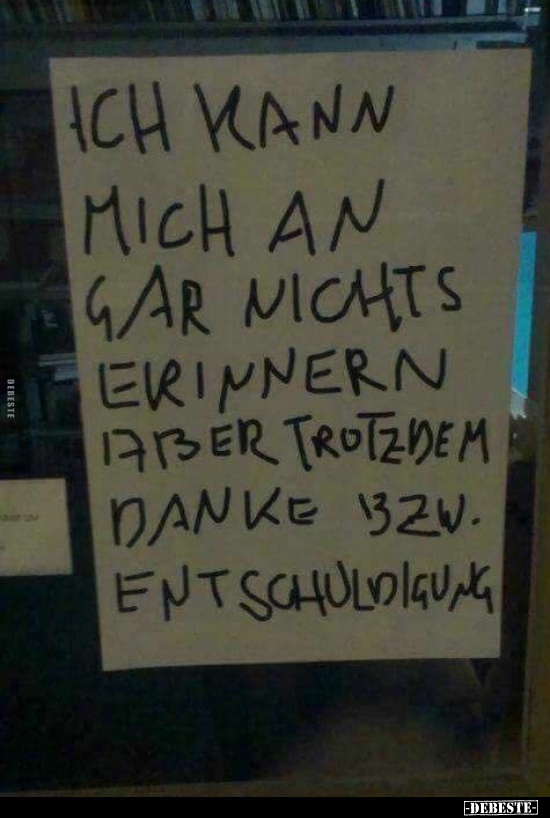 ICH KANN
MICH AN
GAR NICHTS
ERINNERN
ABER TROTZDEM
DANKE BZW.
ENTSCHULDIGUNG
DEBESTE
-DEBESTE-